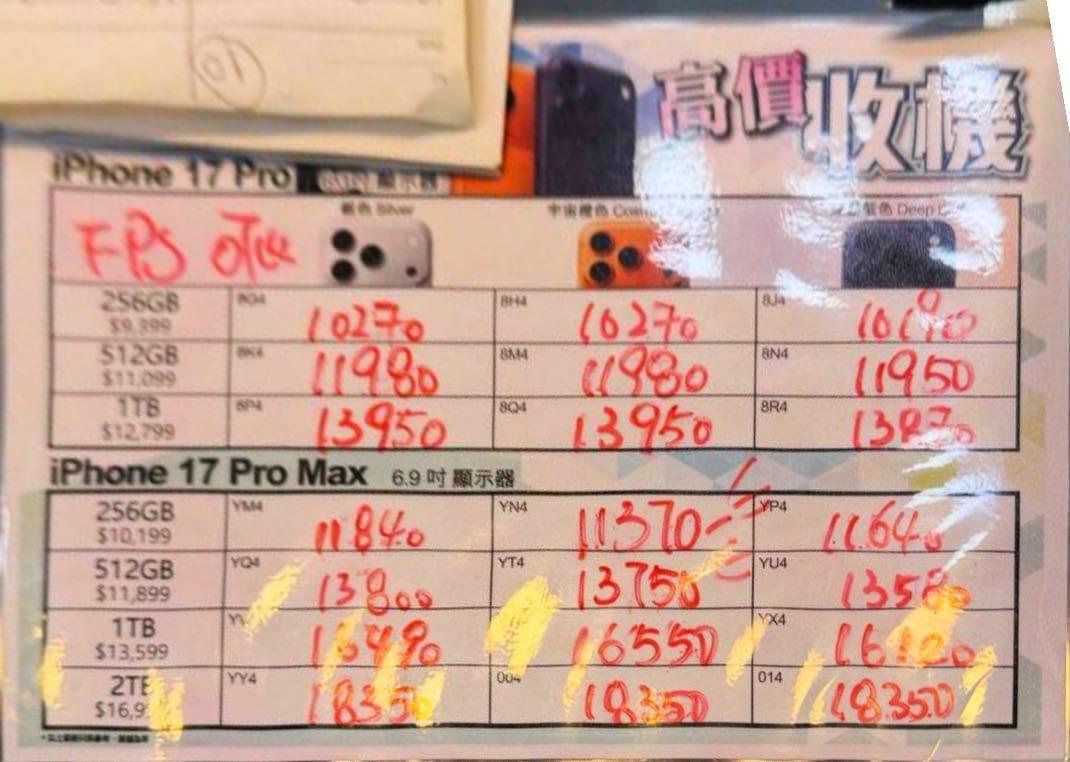 10
高價收機
iPhone 17 Pro 6.3吋 顯示器
FPS 可收
銀色 Silver
宇宙橙色
藍色 Deep
256GB 8G4 10270 8H4 10270 8J4
$9,399
512GB 8K4 11980 8M4 11980 8N4 11950
$11,099
1TB 8P4 13950 8Q4 13950 8R4
$12,799
iPhone 17 Pro Max 6.9吋 顯示器
256GB YM4 11840 YN4 11370 YP4 11640
$10,199
512GB YQ4 13800 YT4 13750 YU4 13580
$11,899
1TB 16490 16550 YX4 16120
$13,599
2TB YY4 18350 004 18350 014 18350